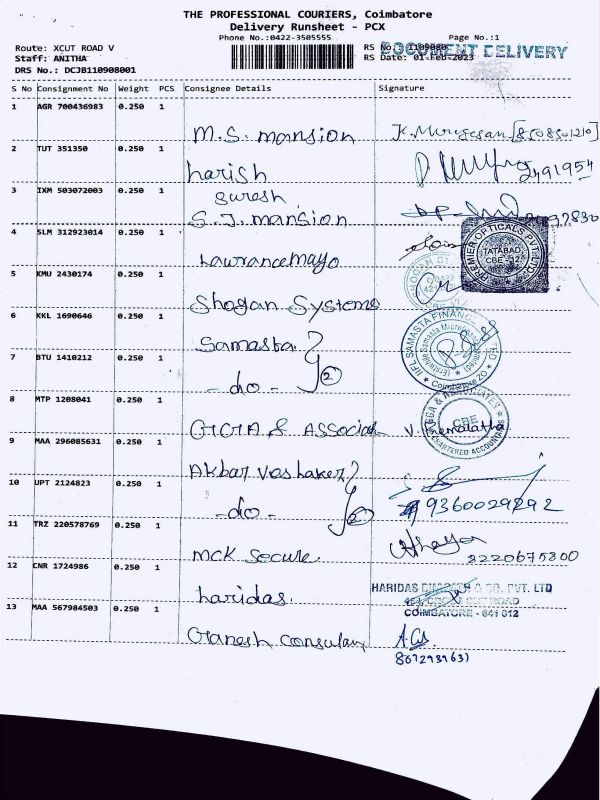 THE PROFESSIONAL COURIERS, Coimbatore
Delivery Runsheet - PCX
Phone No.:0422-3505555 Page No.:1
Route: XCUT ROAD V RS No.: 1109080
DOCUMENT DELIVERY
Staff: ANITHA RS Date: 01-Feb-2023
DRS No.: DCJB110908001
S No Consignment No Weight PCS Consignee Details Signature
1 AGR 700436983 0.250 1
M.S. mansion K. Murugesan [8508501210]
2 TUT 351350 0.250 1
harish 2491954
3 IXM 503072003 0.250 1
suresh
S.J. mansion
4 SLM 312923014 0.250 1
PREMIER OPTICALS PVT. LTD.
TATABAD
CBE - 12
Lawrancemayo
5 KMU 2430174 0.250 1
Shogan Systems
6 KKL 1690646 0.250 1
Samasta
IIFL SAMASTA FINANCE LIMITED
Coimbatore ZO
7 BTU 1410212 0.250 1
- do - 2
8 MTP 1208041 0.250 1
GGA & Associat V. Premalatha
CBE
CHARTERED ACCOUNTANTS
9 MAA 296085631 0.250 1
Akbar
10 UPT 2124823 0.250 1
- do - 2 9360029292
11 TRZ 220578769 0.250 1
MCK Secure
12 CNR 1724986 0.250 1
haridas
HARIDAS & CO. PVT. LTD
COIMBATORE - 641 012
13 MAA 567984503 0.250 1
Ganesh Consulan